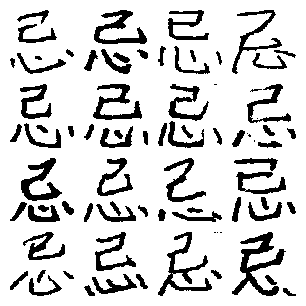 忌忌忌忌
忌忌忌忌
忌忌忌忌
忌忌忌忌